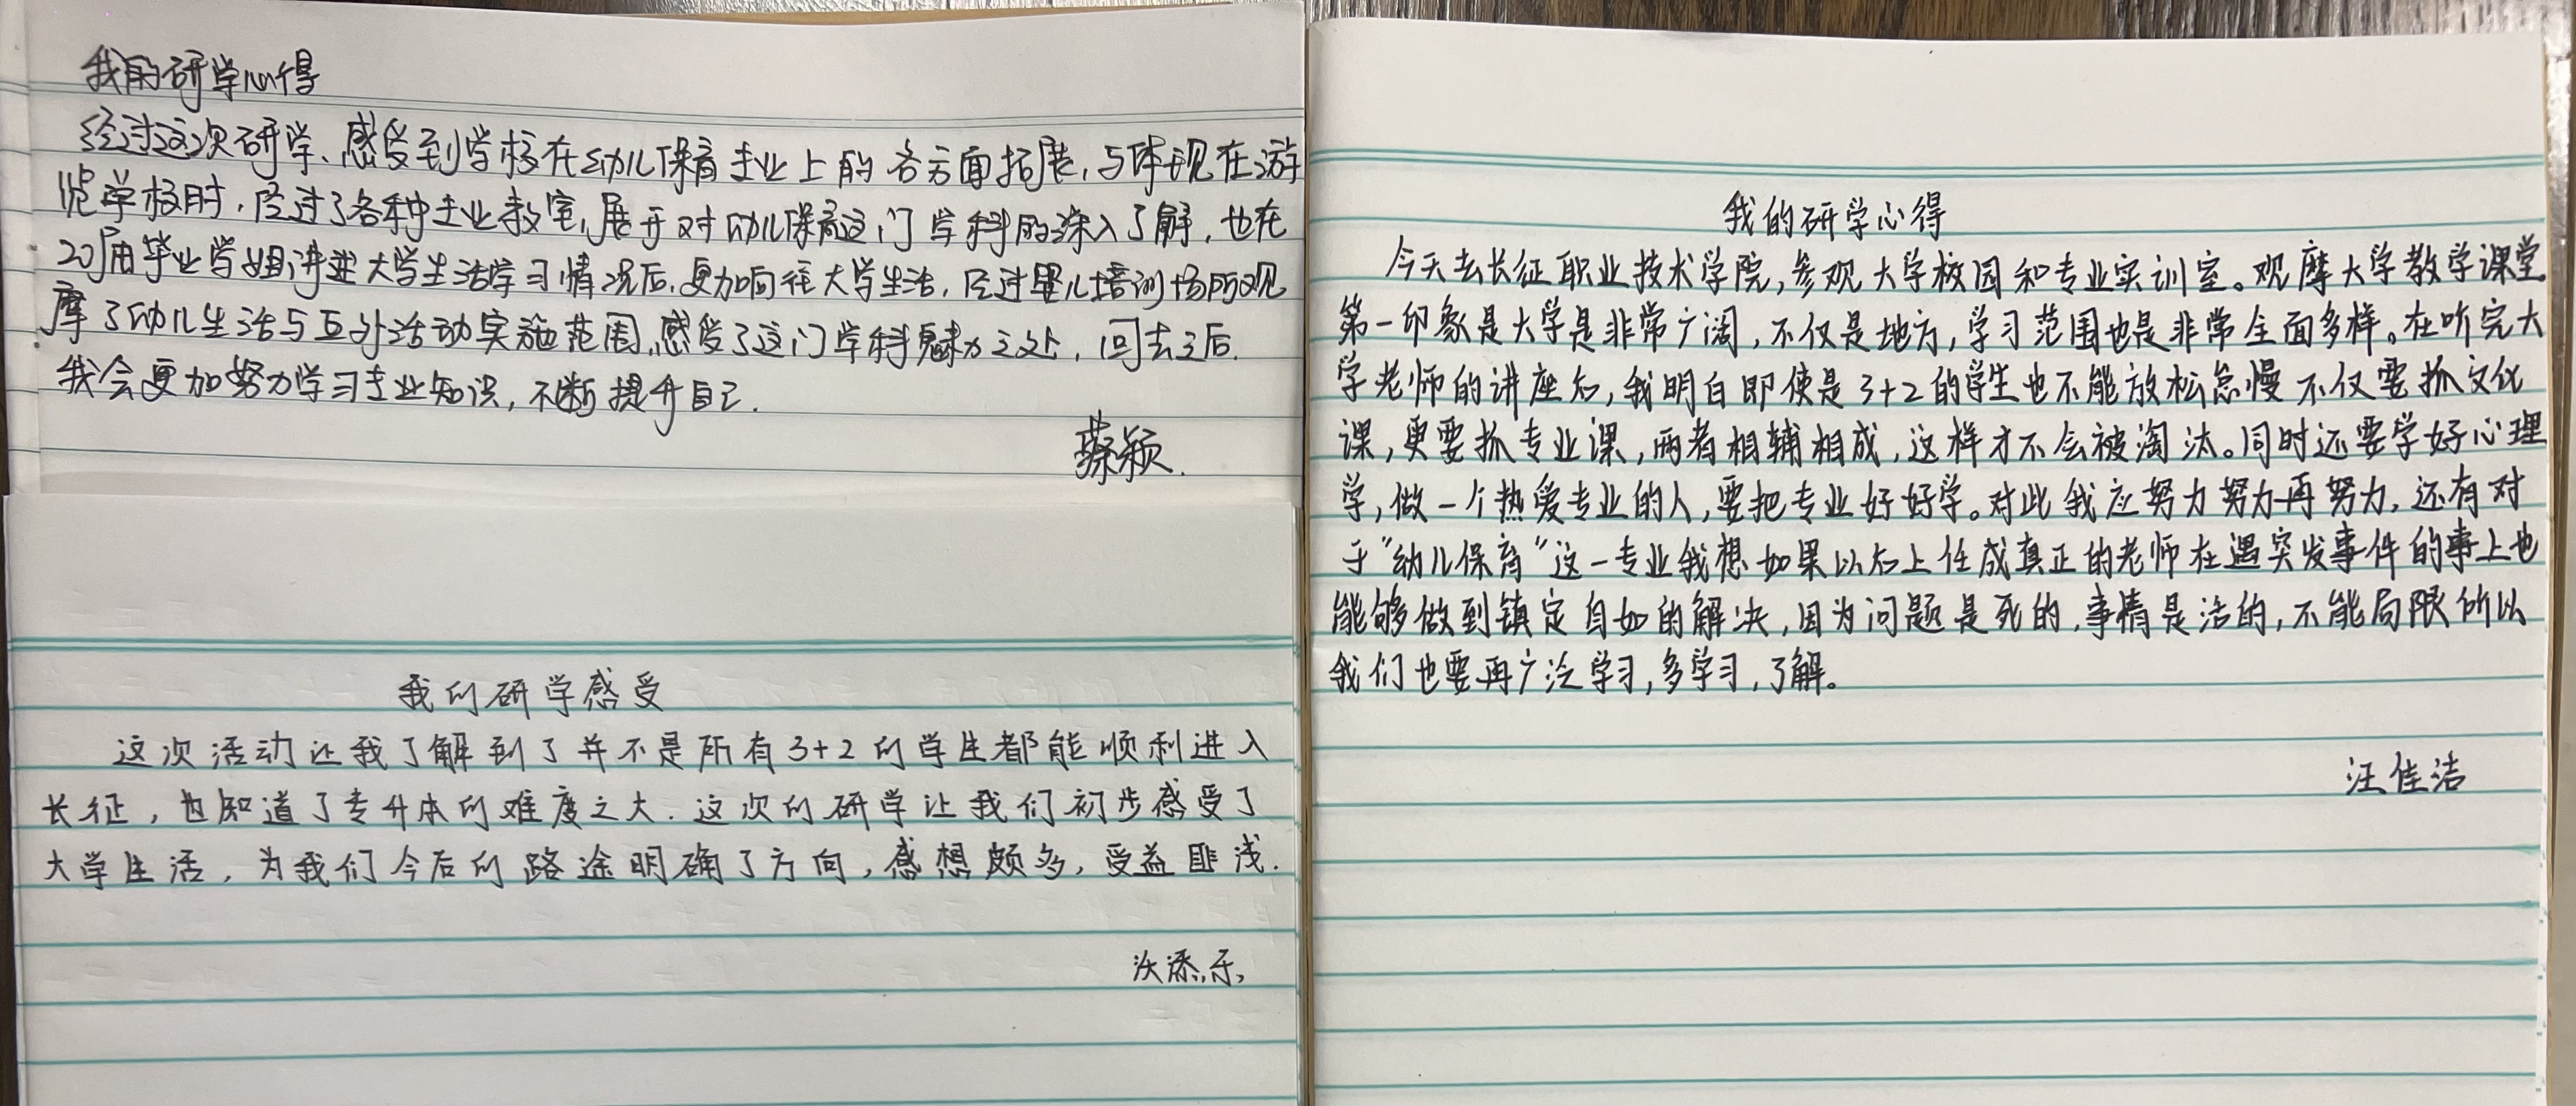 我的研学心得
经过这次研学、感受到学校在幼儿保育专业上的各方面拓展,与体现在游
览学校时,经过了各种专业教室,展开对幼儿保育这门学科的深入了解,也在
20届毕业学姐讲述大学生活学习情况后,更加向往大学生活,经过婴儿培训场所观
摩了幼儿生活与互外活动实施范围,感受了这门学科魅力之处,回去之后.
我会更加努力学习专业知识,不断提升自己.
蔡颖.
我的研学感受
这次活动让我了解到了并不是所有3+2的学生都能顺利进入
长征,也知道了专升本的难度之大.这次的研学让我们初步感受了
大学生活,为我们今后的路途明确了方向,感想颇多,受益匪浅.
沃添乐,
我的研学心得
今天去长征职业技术学院,参观大学校园和专业实训室。观摩大学教学课堂
第一印象是大学是非常广阔,不仅是地方,学习范围也是非常全面多样。在听完大
学老师的讲座后,我明白即使是3+2的学生也不能放松怠慢不仅要抓文化
课,更要抓专业课,两者相辅相成,这样才不会被淘汰。同时还要学好心理
学,做一个热爱专业的人,要把专业好好学。对此我应努力努力再努力,还有对
于"幼儿保育"这一专业我想如果以后上任成真正的老师在遇突发事件的事上也
能够做到镇定自如的解决,因为问题是死的,事情是活的,不能局限所以
我们也要再广泛学习,多学习,了解。
汪佳洁